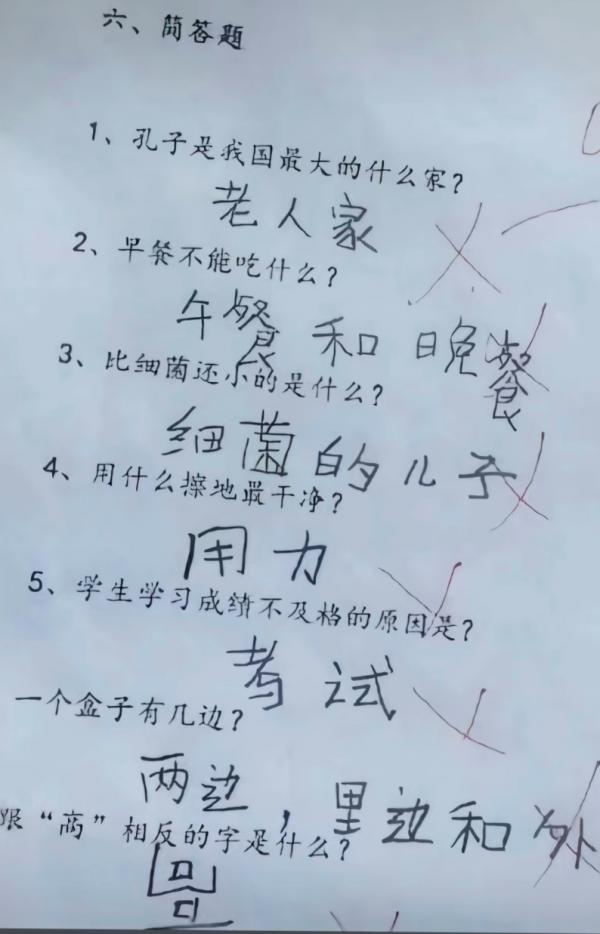 六、简答题
1、孔子是我国最大的什么家?
老人家
2、早餐不能吃什么?
午餐和晚餐
3、比细菌还小的是什么?
细菌的儿子
4、用什么擦地最干净?
用力
5、学生学习成绩不及格的原因是?
考试
一个盒子有几边?
两边,里边和外
跟“高”相反的字是什么?